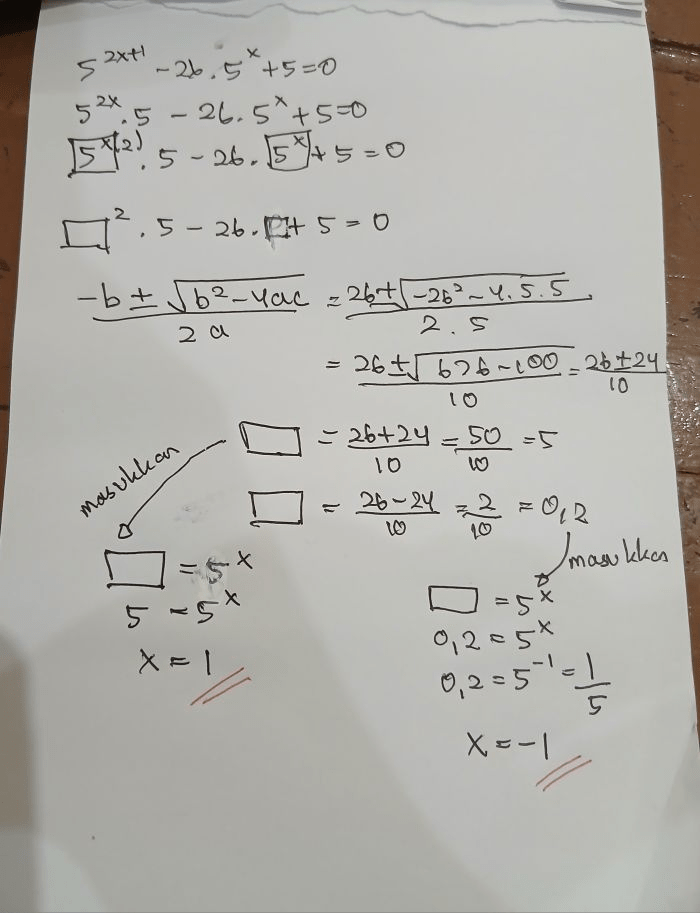 5^{2x+1} - 26 . 5^x + 5 = 0
5^{2x} . 5 - 26 . 5^x + 5 = 0
□(5^x)^{(2)} . 5 - 26 . □(5^x) + 5 = 0
□² . 5 - 26 . □ + 5 = 0
(-b ± √(b² - 4ac)) / (2a) = (26 ± √(-26² - 4 . 5 . 5)) / (2 . 5)
= (26 ± √(676 - 100)) / 10 = (26 ± 24) / 10
□ = (26 + 24) / 10 = 50 / 10 = 5
masukkan
□ = (26 - 24) / 10 = 2 / 10 = 0,2
masukkan
□ = 5^x
5 = 5^x
x = 1
□ = 5^x
0,2 = 5^x
0,2 = 5^{-1} = 1 / 5
x = -1